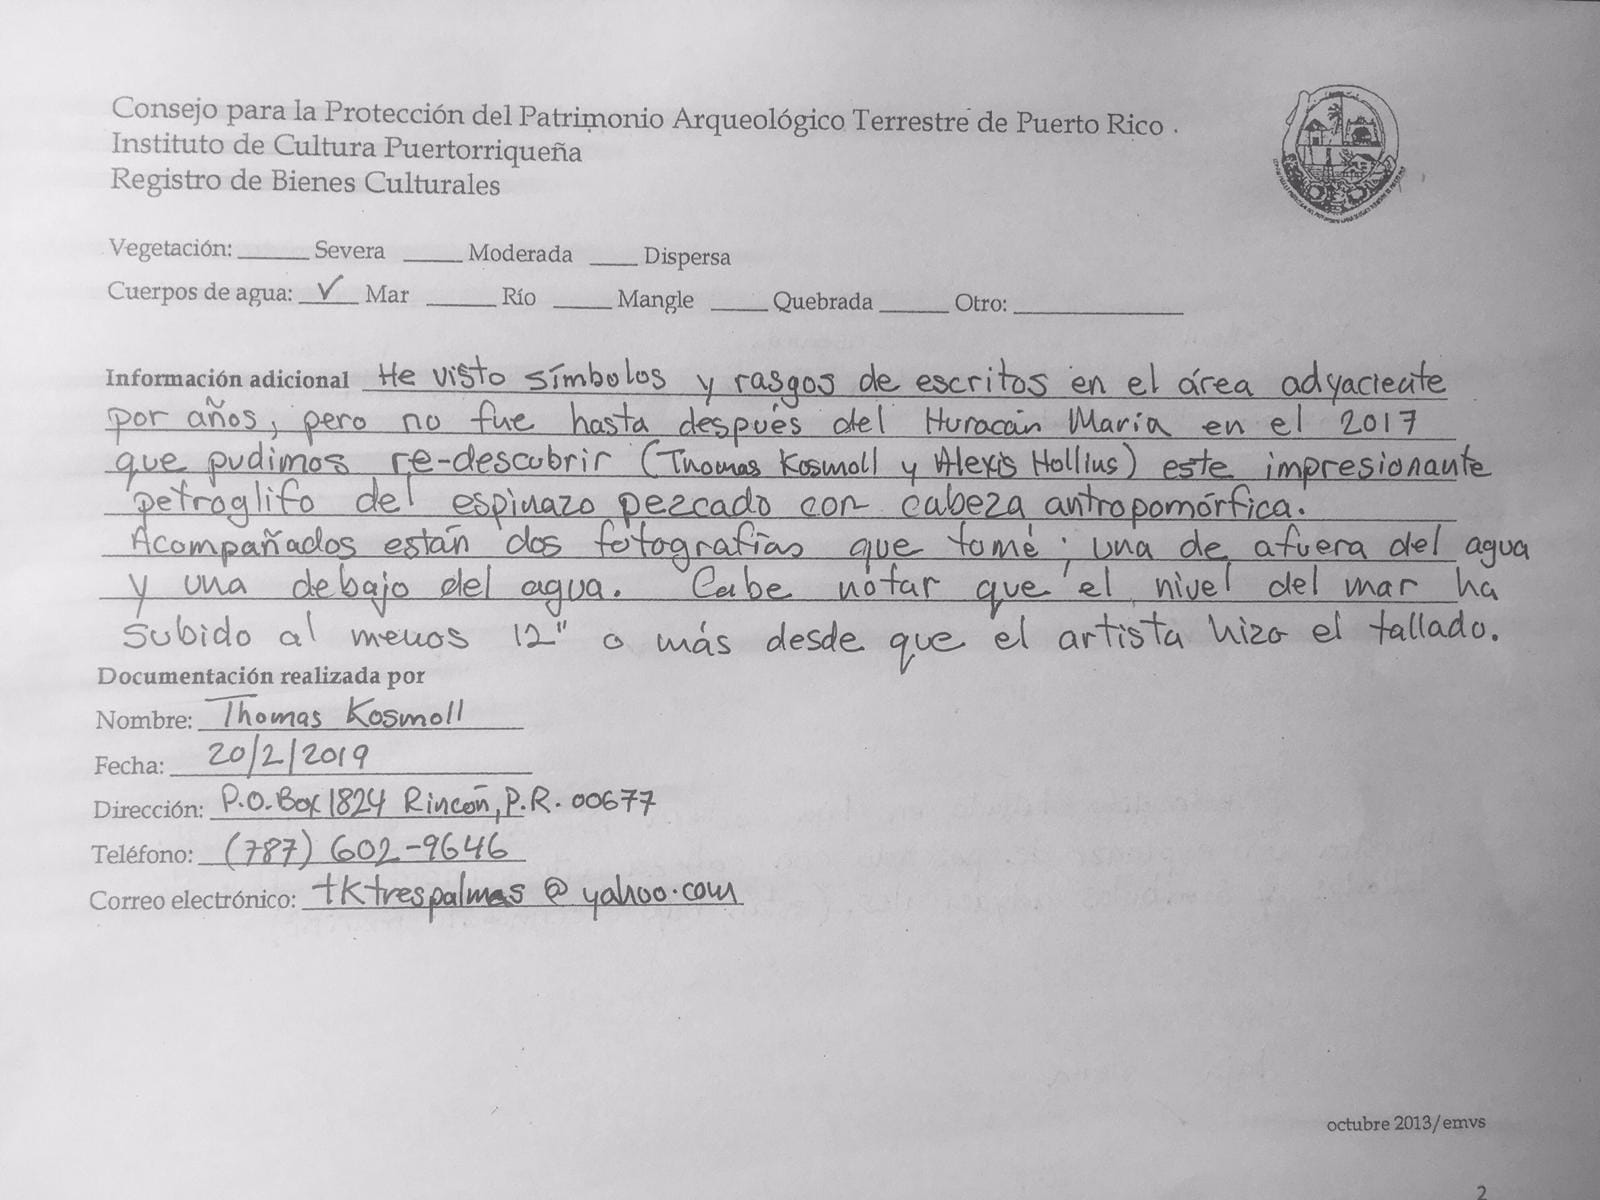 Consejo para la Protección del Patrimonio Arqueológico Terrestre de Puerto Rico.
Instituto de Cultura Puertorriqueña
Registro de Bienes Culturales
Vegetación: ______ Severa _____ Moderada ____ Dispersa
Cuerpos de agua: __✓__ Mar ______ Río _____ Mangle _____ Quebrada ______ Otro: ______________
Información adicional He visto símbolos y rasgos de escritos en el área adyaciente
por años, pero no fue hasta después del Huracán María en el 2017
que pudimos re-descubrir (Thomas Kosmoll y Alexis Hollius) este impresionante
petroglifo del espinazo pezcado con cabeza antropomórfica.
Acompañados están dos fotografías que tomé; una de afuera del agua
y una debajo del agua. Cabe notar que el nivel del mar ha
subido al menos 12" o más desde que el artista hizo el tallado.
Documentación realizada por
Nombre: Thomas Kosmoll
Fecha: 20/2/2019
Dirección: P.O. Box 1824 Rincón, P.R. 00677
Teléfono: (787) 602-9646
Correo electrónico: tktrespalmas@yahoo.com
octubre 2013/emvs
2